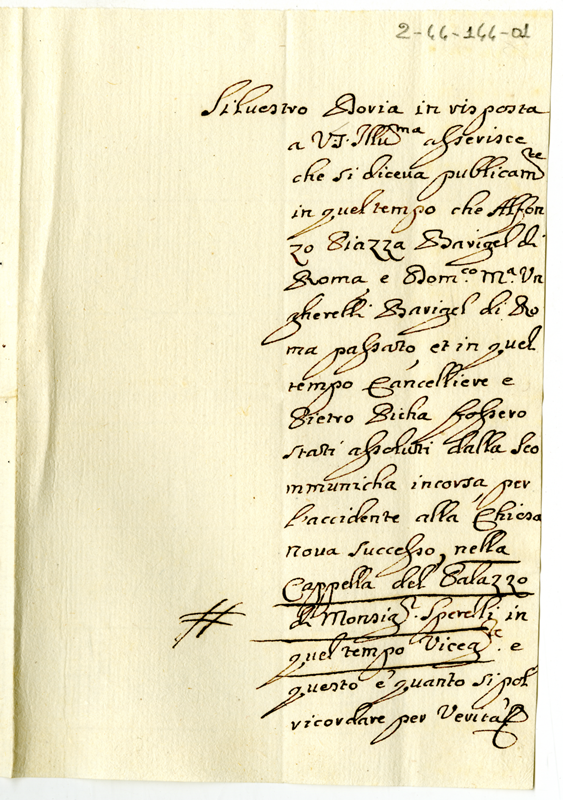 2-44-144-01
Siluestro Doria in risposta
a V.S. Illu^ma asserisce
che si diceua publicam^te
in quel tempo che Alfon
zo Piazza Barigel di
Roma e Dom.^co M.^a Un
gherelli Barigel di Ro
ma passato, et in quel
tempo Cancelliere e
Pietro Dicha fossero
stati assoluti dalla Sco
mmunicha incorsa per
l'accidente alla Chiesa
nova successo, nella
Cappella del Palazzo
# di Monsig^r. Sperelli in
quel tempo Viceg^te. e
questo è quanto si pol
ricordare per Verità